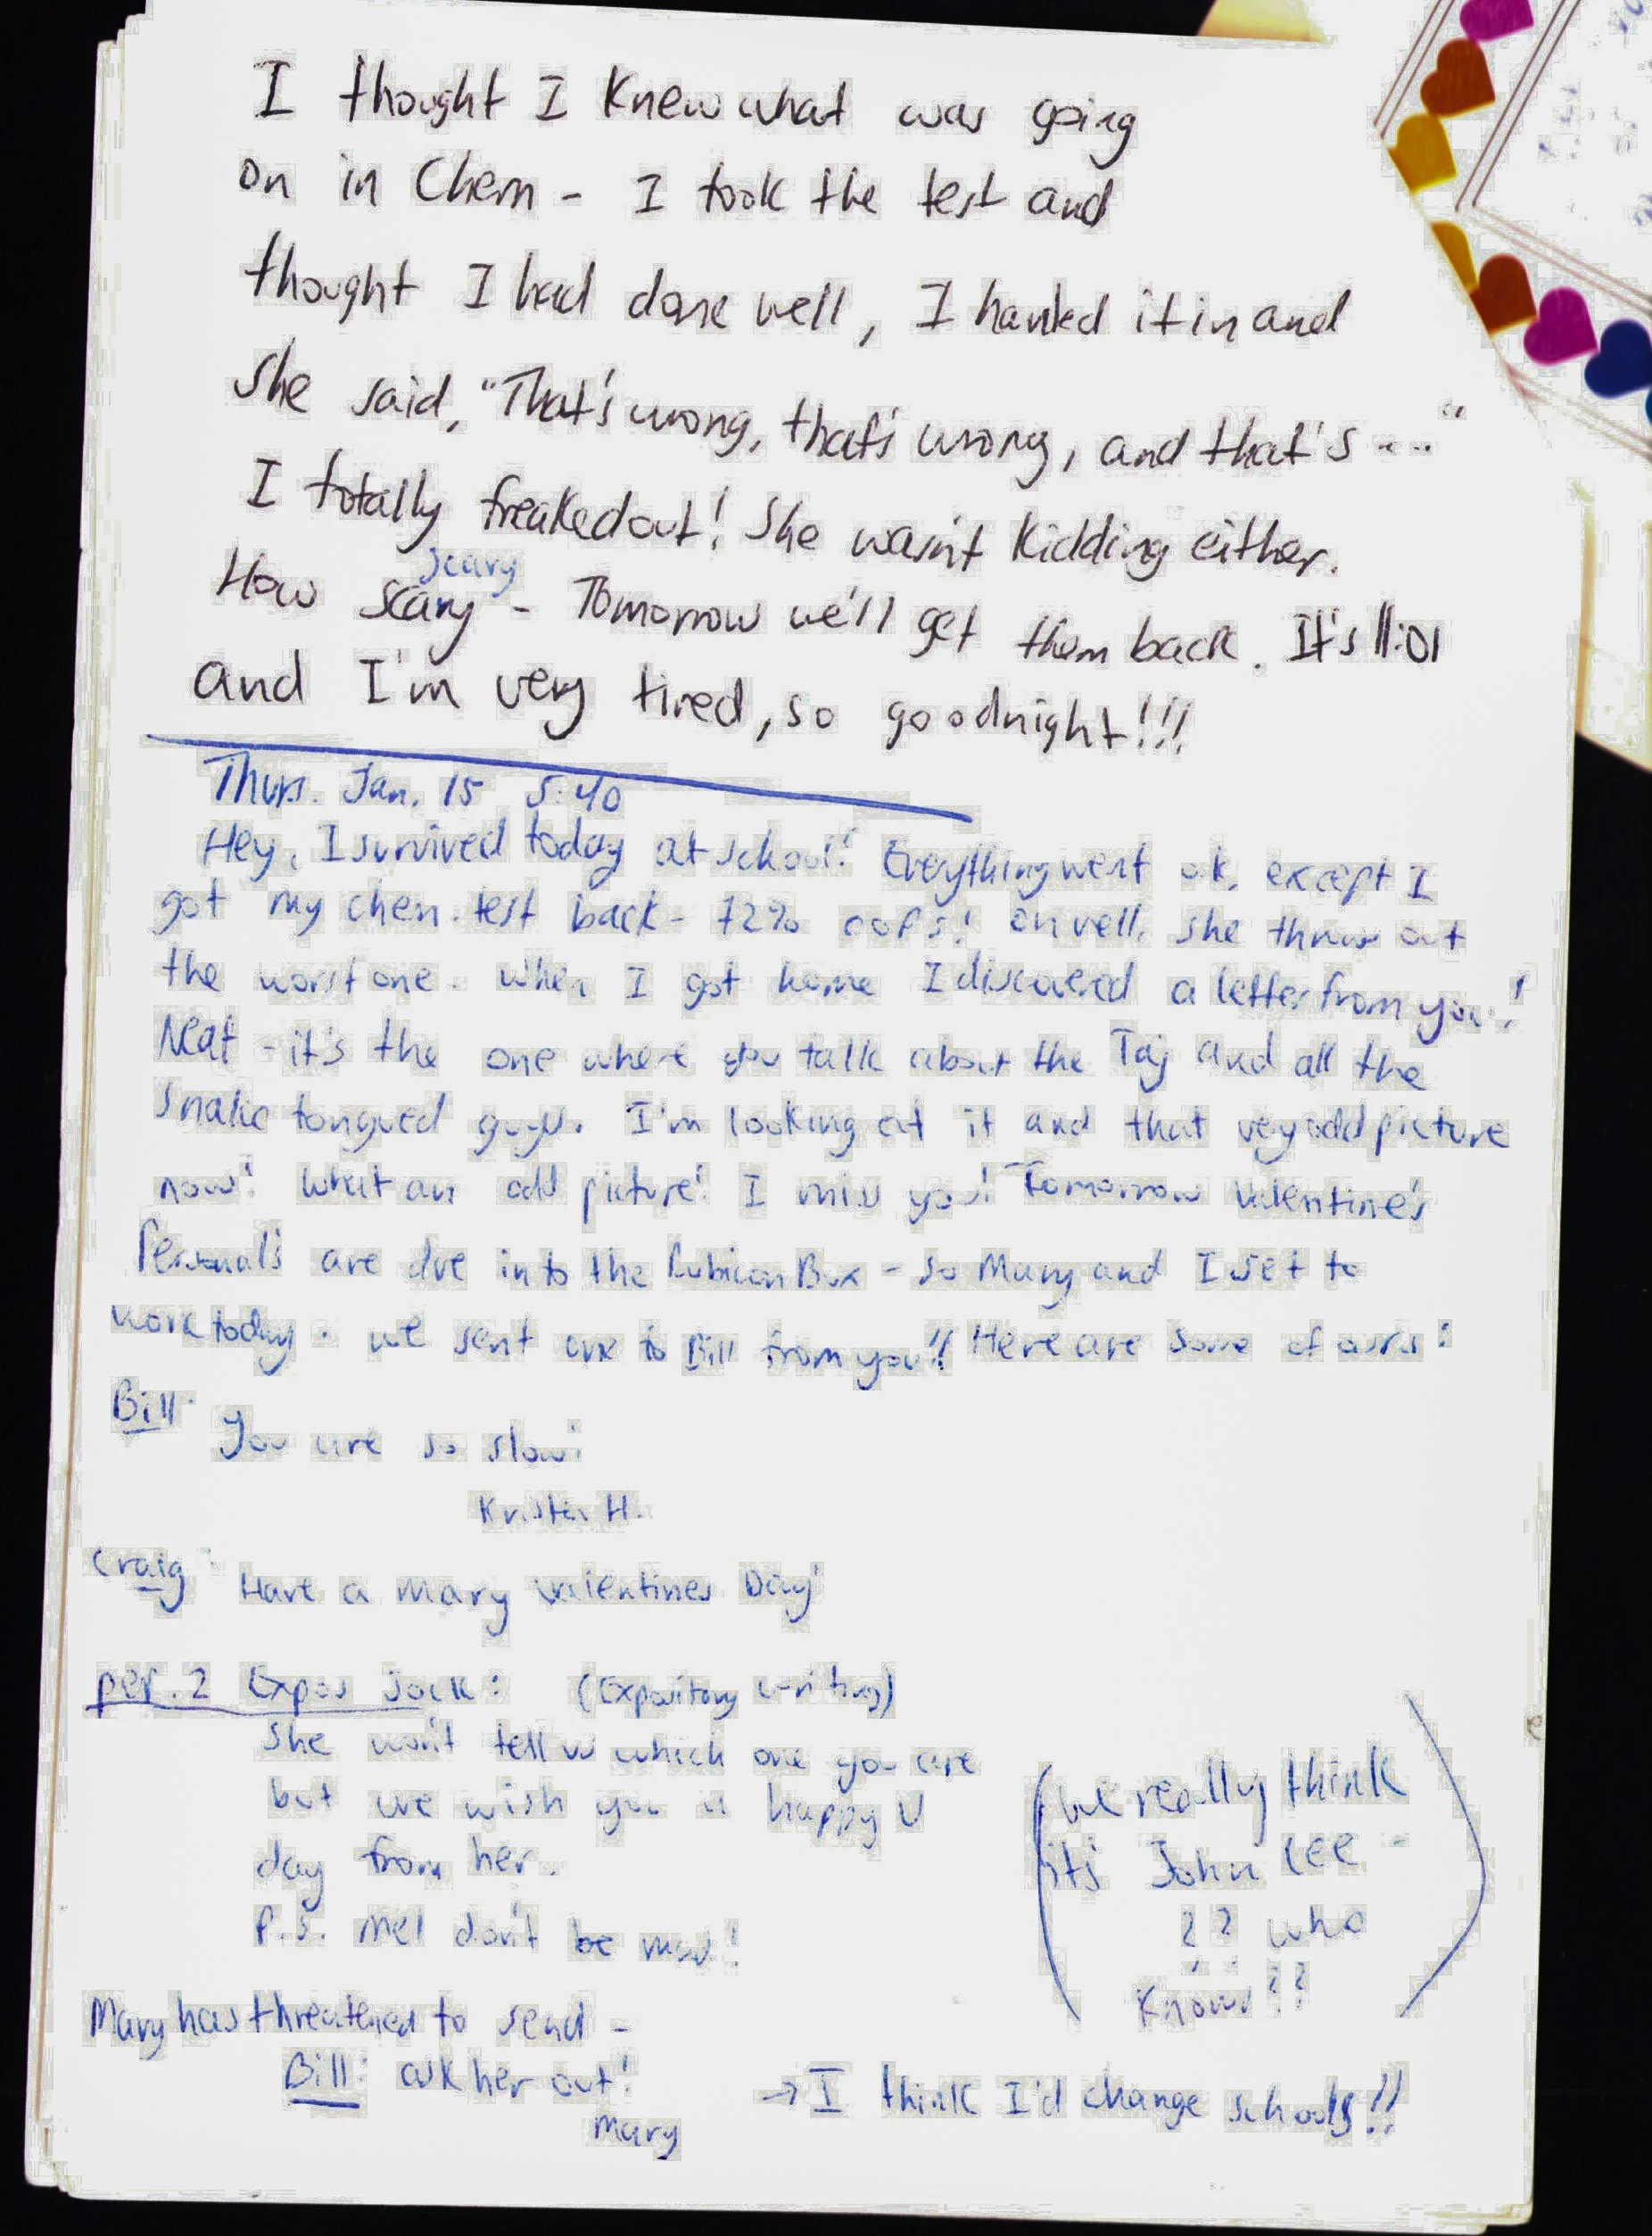 I thought I knew what was going
on in Chem - I took the test and
thought I had done well, I handed it in and
she said, "That's wrong, that's wrong, and that's ---"
I totally freaked out! She wasn't kidding either.
scary
How scary - Tomorrow we'll get them back. It's 11:01
and I'm very tired, so goodnight!!!
Thurs. Jan. 15 5:40
Hey, I survived today at school! Everything went ok, except I
got my chem. test back - 72% oops! Oh well, she threw out
the worst one. When I got home I discovered a letter from you!
Neat - it's the one where you talk about the Taj and all the
snake tongued guys. I'm looking at it and that very odd picture
now! What an odd picture! I miss you! Tomorrow Valentine's
Personals are due into the Rubicon Box - so Mary and I set to
work today. We sent one to Bill from you!! Here are some of ours:
Bill: You are so slow!
Kristen H.
Craig: Have a Mary Valentines Day!
per. 2 Expos Jock: (Expository writing)
She won't tell us which one you are
but we wish you a happy V
day from her.
P.S. Mel don't be mad!
(we really think
its John Lee -
?? who
Knows??)
Mary has threatened to send -
Bill: ask her out!
Mary
→ I think I'd change schools!!